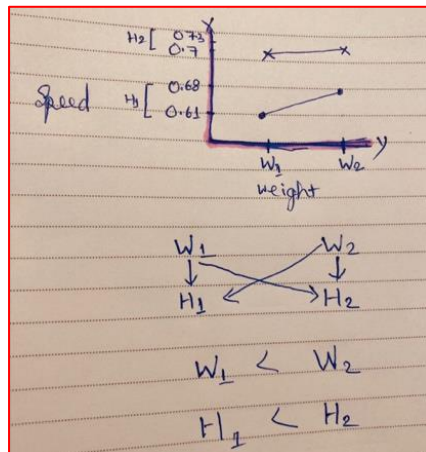 X
H2 [ 0.73
0.7
0.68
Speed H1 [
0.61
W1 W2 y
weight
W1 W2
H1 H2
W1 < W2
H1 < H2